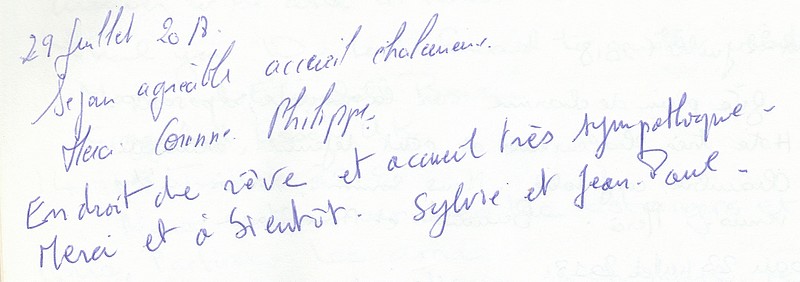 29 Juillet 2018.
Séjour agréable accueil chaleureux.
Merci Corinne. Philippe.
Endroit de rêve et accueil très sympathique.
Merci et à bientôt. Sylvie et Jean-Paul.